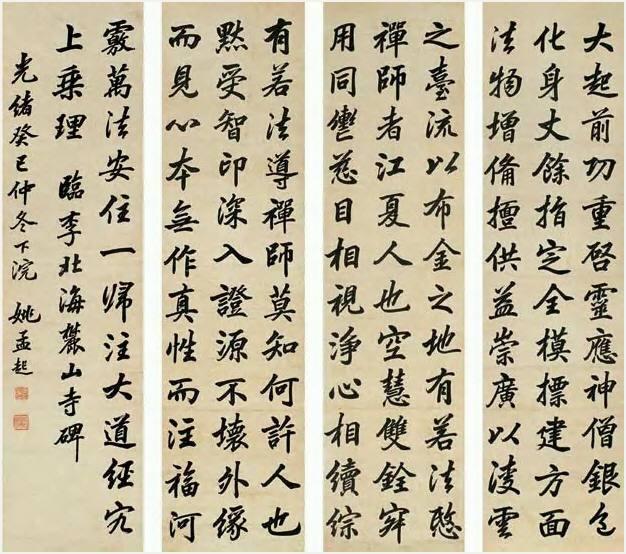 大起前功重啓靈應神僧銀色
化身丈餘指定全模摽建方面
法物增備擅供益崇廣以凌雲
之臺流以布金之地有若法愍
禪師者江夏人也空慧雙銓寂
用同轡慈目相視淨心相續綜
有若法導禪師莫知何許人也
默受智印深入證源不壞外緣
而見心本無作真性而注福河
覈萬法安住一歸注大道經宂
上乘理 臨李北海麓山寺碑
光緒癸巳仲冬下浣 姚孟起